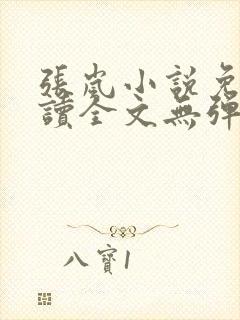 張嵐小說免
讀全文無彈
八寶1